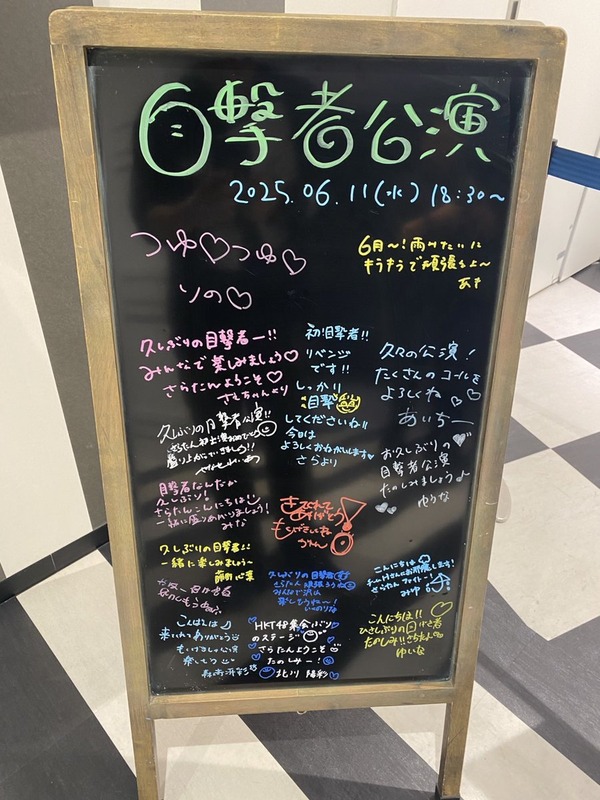 目撃者公演
2025.06.11(水) 18:30~
つゆ♡つゆ♡
りの♡
6月〜!雨みたいに
キラキラで頑張るよ〜
あき
久しぶりの目撃者ー!!
みんなで楽しみましょう♡
さらたんようこそ♡
初目撃者!!
リベンジ
です!!
しっかり
目撃
してくださいね!!
今日は
よろしくおねがいします
さらより
久々の公演!
たくさんのコールを
よろしくね♡♡
あいちー
久しぶりの目撃者公演!!
盛り上がっていきましょう!!
お久しぶりの
目撃者公演
たのしみましょう♪
ゆうな
目撃者なんだか
久しぶり!
さらたんこんにちは
一緒に盛りあがりましょう!
みな
きてくれて
ありがとう!
かりん
久しぶりの目撃者!!
一緒に楽しみましょう〜
久しぶりの目撃者
さらたん頑張ろうね
みんなで沢山
楽しもうね〜!
こんにちは
チームHさんにお邪魔します!
さらたんファイトー!
みゆ
こんばんは
来てくれてありがとう
公演
楽しもう
HKT48集会ぶり
のステージ
さらたんようこそ
たのしみー!
北川 陽彩
こんにちは!!
ひさしぶりの目げき者
たのしみ!!さらたん
ゆいな